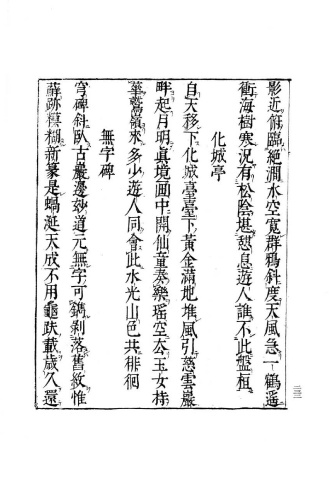 影近俯臨絕澗水空寬群鴉斜度天風急一鶴遥
衝海樹寒況有松陰堪憩息遊人誰不此盤桓
化城亭
自天移下化城臺臺下黃金滿地堆風引慈雲巖
畔起月明真境画中開仙童奏樂瑶空冷玉女持
華鷲嶺來多少遊人同會此水光山色共徘徊
無字碑
穹碑斜臥古巖邊妙道元無字可鐫剥落舊紋惟
蘚跡模糊新篆是蝸涎天成不用龜趺載歲久還
三二